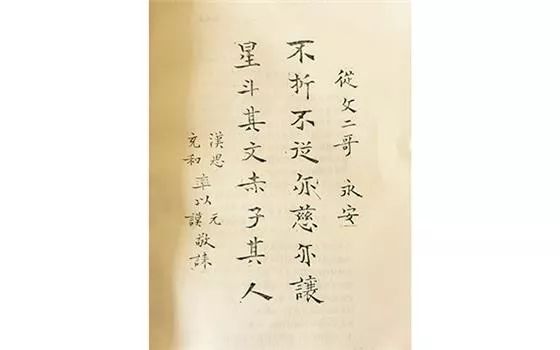 從文二哥 永安
不折不從亦慈亦讓
星斗其文赤子其人
漢思充和率以元謨敬誄